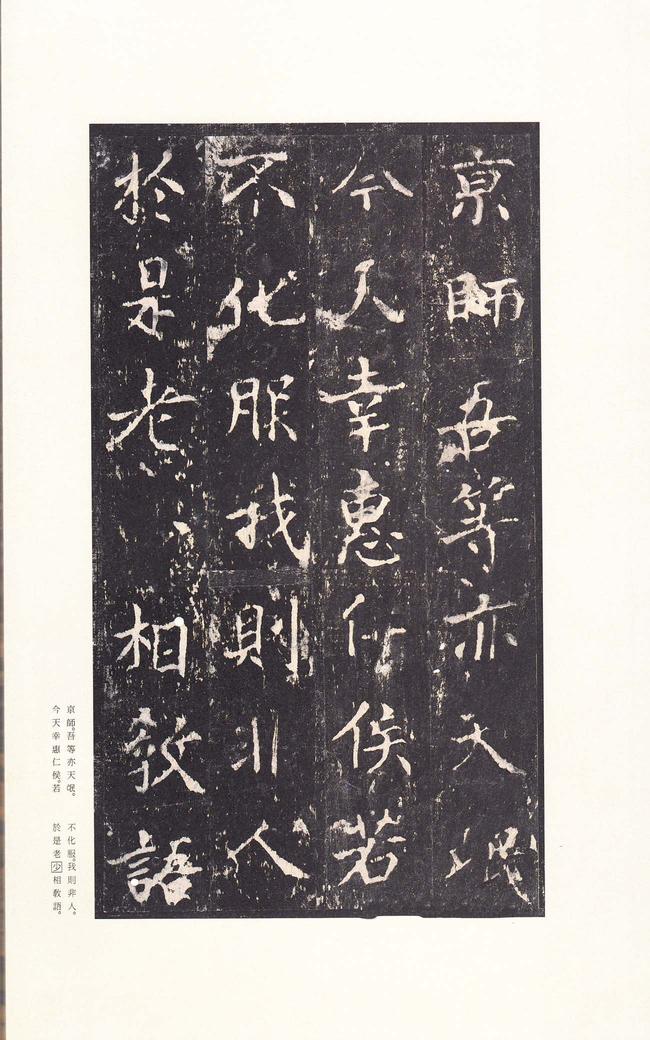 京師吾等亦天氓
今天幸惠仁侯若
不化服我則非人
於是老相敎語
京師。吾等亦天氓。
今天幸惠仁侯。若
不化服。我則非人。
於是老少相敎語。